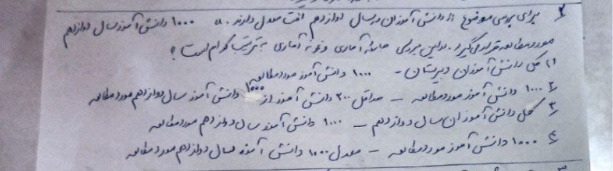 ۲ برای بررسی موضوع « دانش آموزان در سال دوازدهم افت معدل دارند » ۱۰۰۰ دانش آموز سال دوازدهم
مورد مطالعه قرار می گیرد. در این بررسی جامعه آماری و نمونه آماری به ترتیب کدام است؟
۱) کل دانش آموزان دبیرستان - ۱۰۰۰ دانش آموز مورد مطالعه
۲) ۱۰۰۰ دانش آموز مورد مطالعه - حداقل ۲۰۰ دانش آموز از ۱۰۰۰ دانش آموز سال دوازدهم مورد مطالعه
۳) کل دانش آموزان سال دوازدهم - ۱۰۰۰ دانش آموز سال دوازدهم مورد مطالعه
۴) ۱۰۰۰ دانش آموز مورد مطالعه - معدل ۱۰۰۰ دانش آموز سال دوازدهم مورد مطالعه